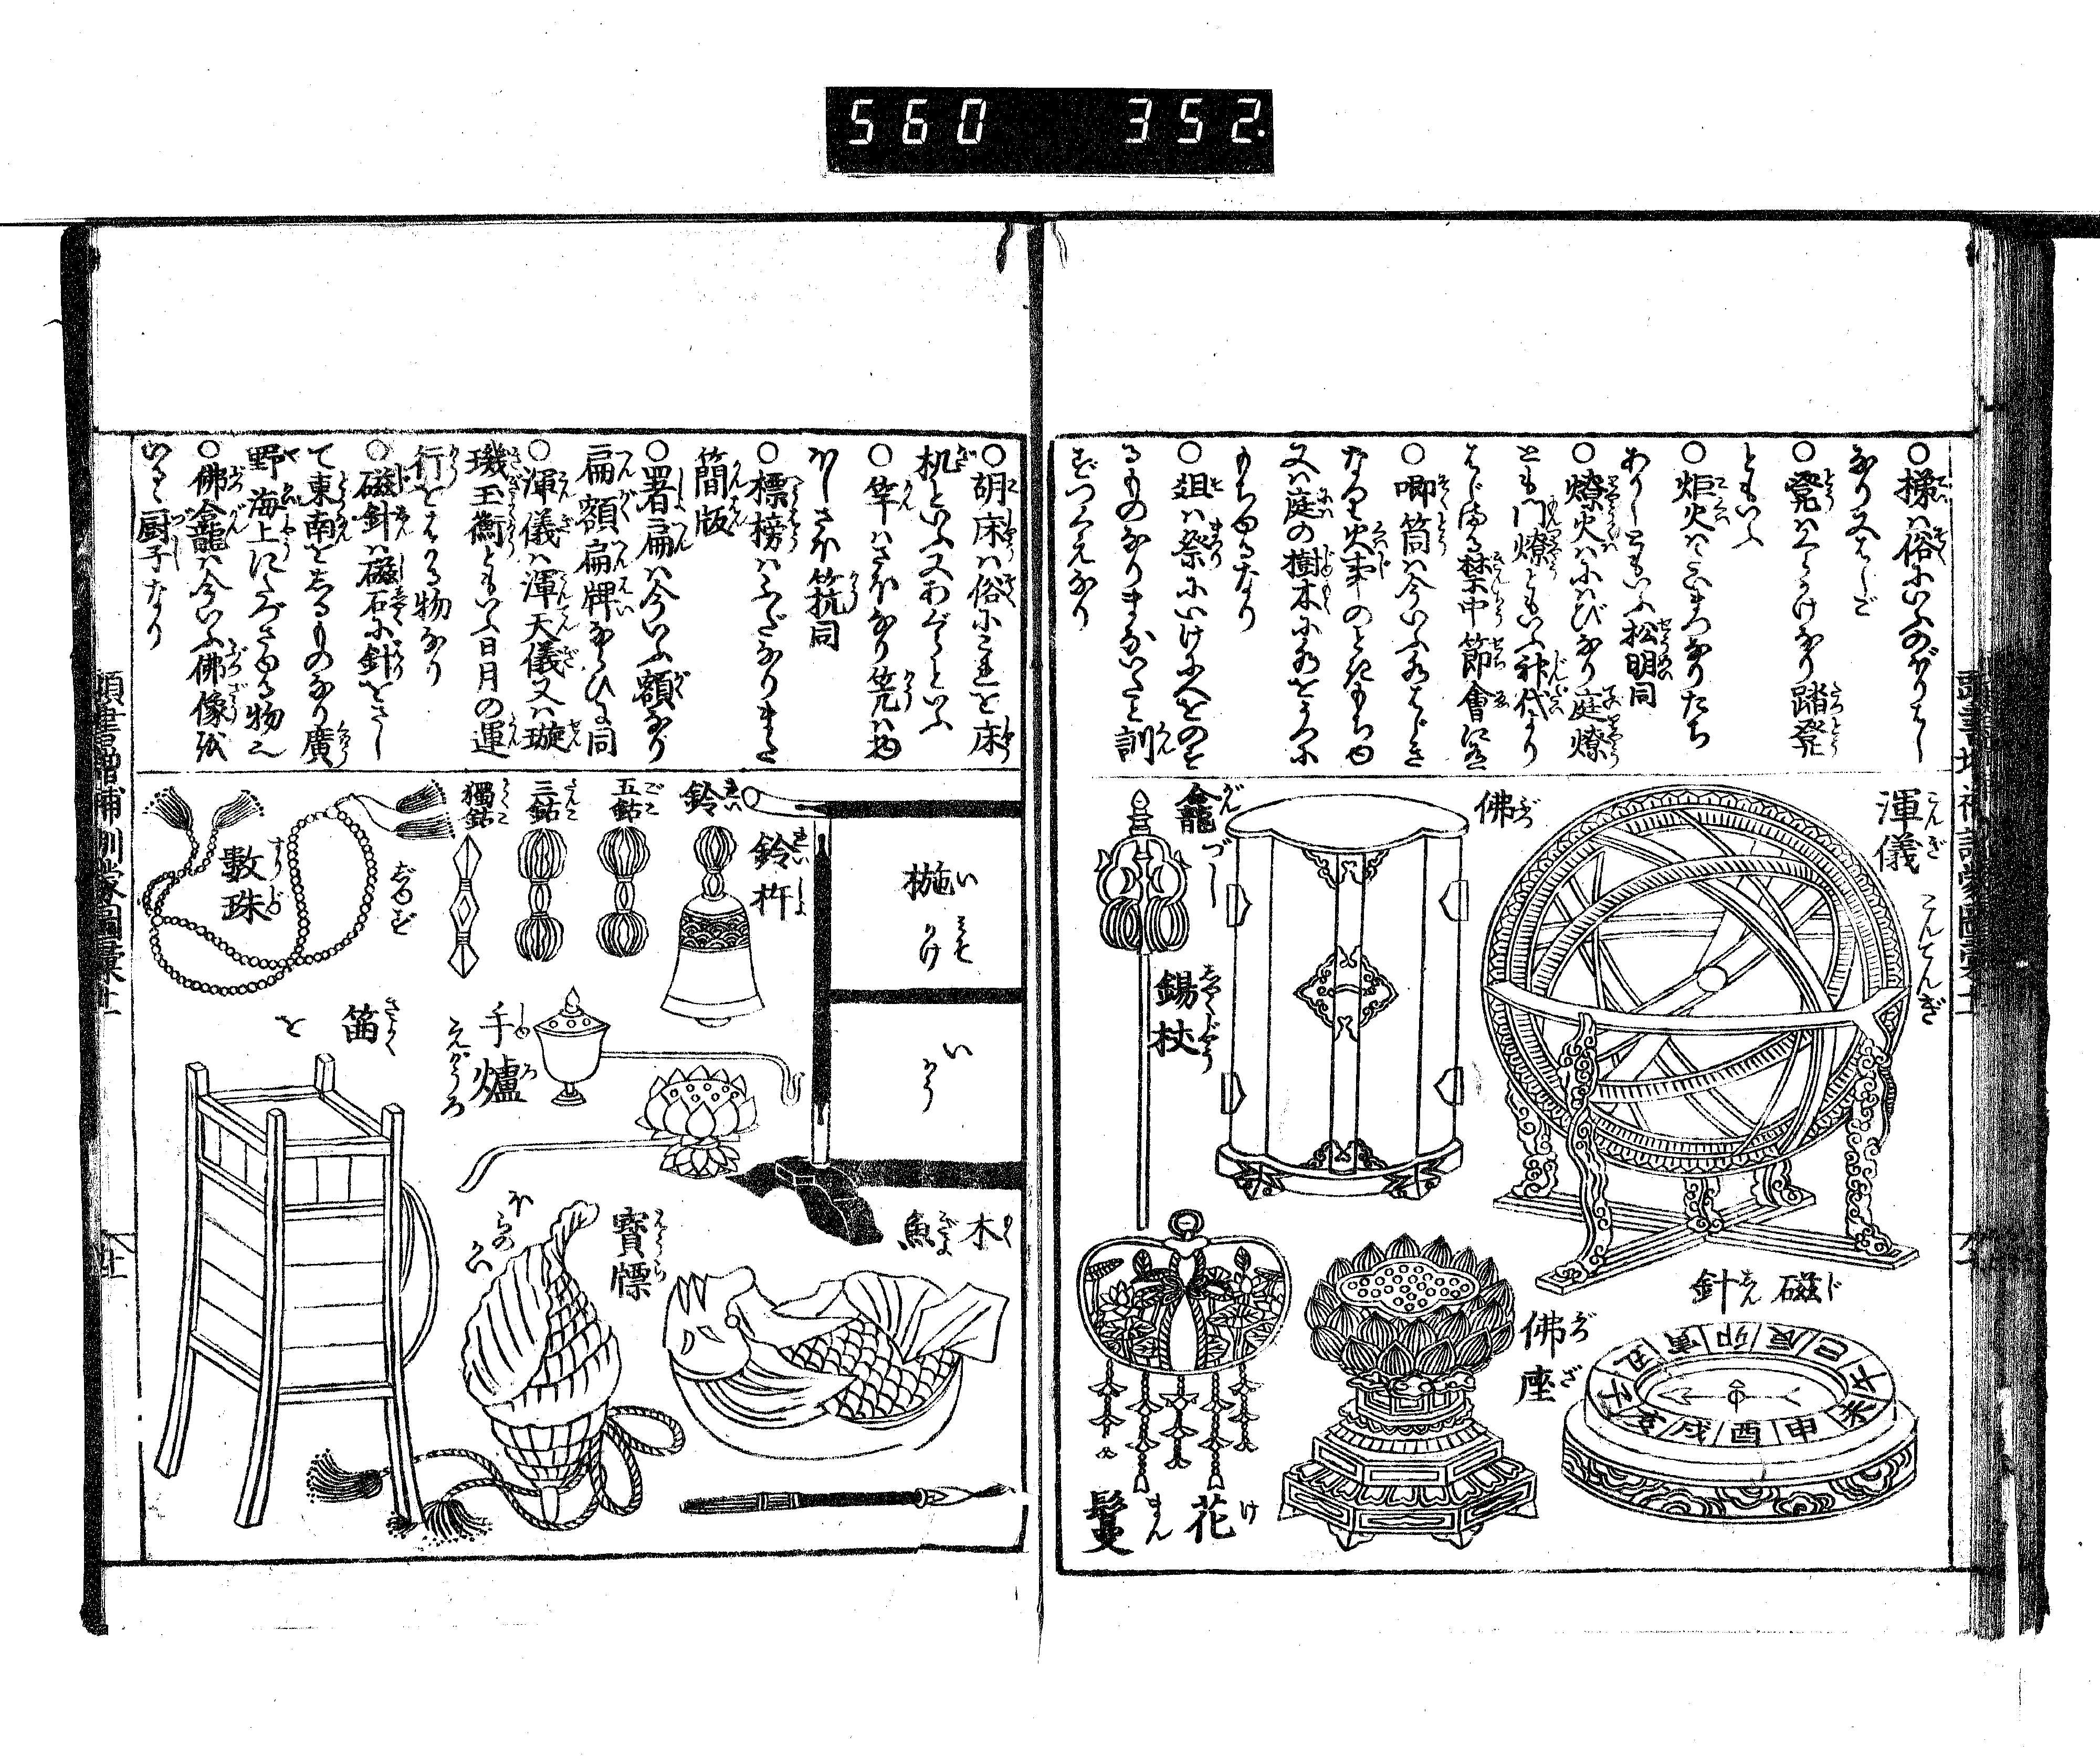 560 352.
○梯ハ俗にいふのぼりはし
なり又はしご
○凳ハこしかけなり踏凳
ともいふ
○炬火ハたいまつなりたち
あかしともいふ松明同
○燎火ハにはびなり庭燎
とも門燎ともいふ神代より
はじまる禁中節會に
○喞筒ハ今いふ水はじき
なり火事のときもちゆ
又ハ庭の樹木に水をうつに
もちゆるなり
○俎ハ祭にいけにへをのす
るものなりまないたと訓
ずつくえなり
渾儀
こんぎ
こんてんぎ
佛龕
づし
錫杖
しやくぢやう
磁針
じしん
子丑寅卯辰巳午未申酉戌亥
佛座
ぶつざ
花鬘
けまん
○胡床ハ俗にこれを床
机といふ又あぐらといふ
○竿ハさほなり筦ハ物
ほしさほ笐同
○標榜ハふだなりまた
簡版
○署扁ハ今いふ額なり
扁額扁牌ならひに同
○渾儀ハ渾天儀又ハ璇
璣玉衡ともいふ日月の運
行をはかる物なり
○磁針ハ磁石に針をさし
て東南をしるものなり廣
野海上にたづさゆる物也
○佛龕ハ今いふ佛像を
いるゝ厨子なり
椸
い
みそかけ
いかう
鈴
れい
鈴杵
れいしよ
五鈷
ごこ
三鈷
さんこ
獨鈷
とくこ
數珠
ずゞ
手爐
しゆろ
えがうろ
笛
を
木魚
もくぎよ
寳螺
ほうら
ほらのかい
頭書增補訓蒙圖彙